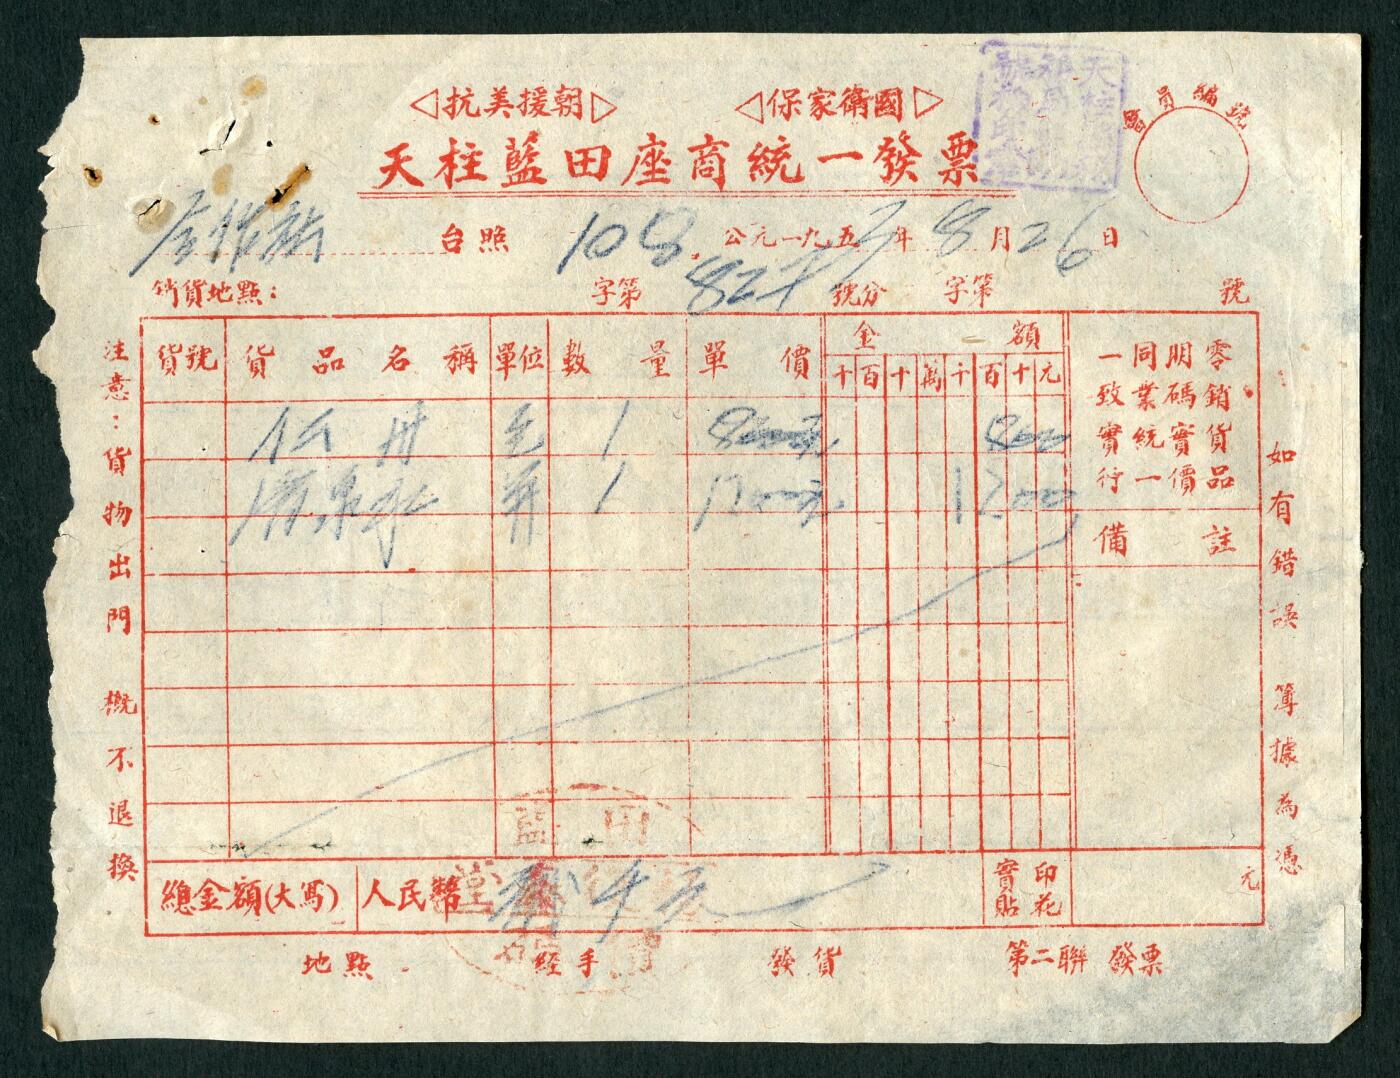 抗美援朝 保家衛國
天柱藍田座商統一發票
員編號
合作社 台照 108 公元一九五3年8月26日
銷貨地點： 字第 號分 字第 號
貨號 貨品名稱 單位 數量 單價 金額
千百十萬千百十元
仁丹 包 1 800元 800
濟衆水 瓶 1 1200元 1200
零銷貨品
明碼實價
同業統一
一致實行
備註
總金額(大寫) 人民幣 仟元
實貼印花 元
地點 經手 發貨 第二聯 發票
注意：貨物出門概不退換
如有錯誤 簿據為憑
藍田
堂